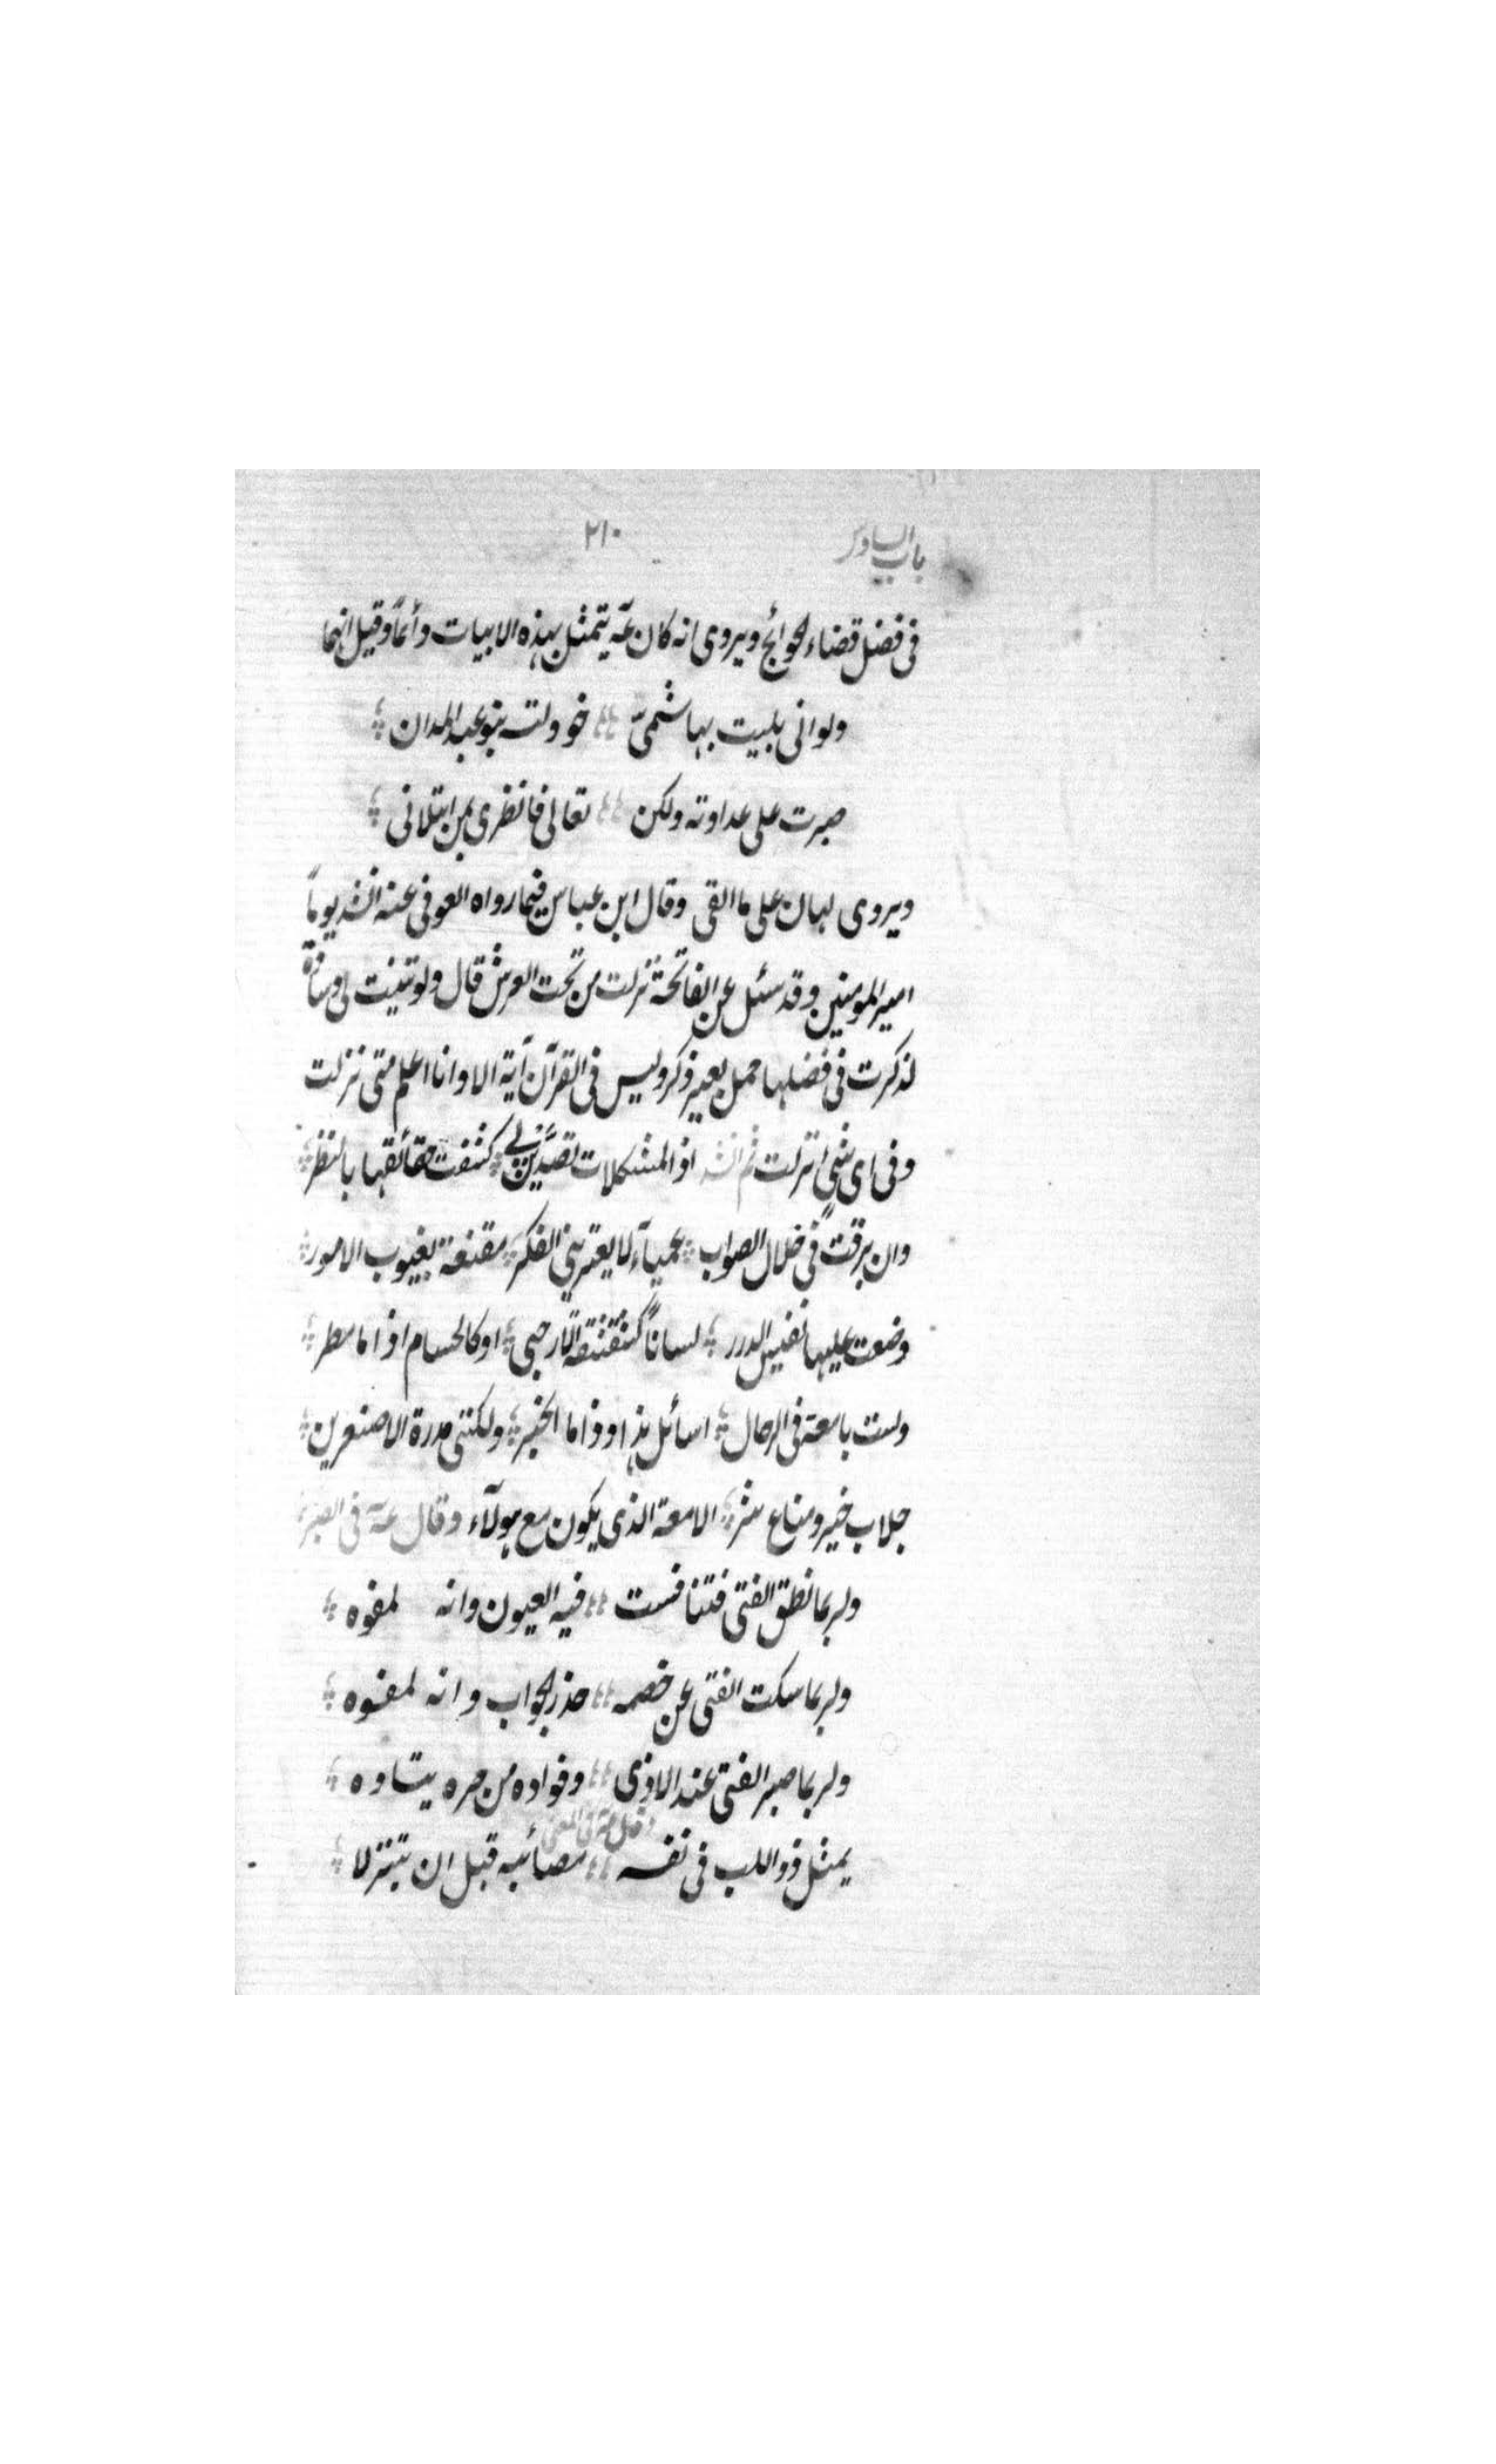 باب السادس ٢١٠
فى فضل قضاء الحوائج ويروى انه كان عمّ يتمثل بهذه الابيات وأتماً وقيل انهما
ولوانى بليت بهاشمىّ خوولته بنو عبد المدان
صبرت على عداوته ولكن تعالى فانظرى بمن ابتلانى
ويروى لهان على ما القى وقال ابن عباس فيما رواه العوفى عنه انشد يوماً
امير المومنين وقد سئل عن الفاتحة نزلت من تحت العرش قال ولو ثنيت لى وسادة
لذكرت فى فضلها حمل بعير ذكر وليس فى القرآن آية الا وانا اعلم متى نزلت
وفى اى شئ انزلت ثم انشد اذا المشكلات تصدّين لى كشفت حقائقها بالنظر
وان برقت فى خلال الصواب عمياء لا يعترينى الفكر مقنعة بغيوب الامور
وضعت عليها نفيس الدرر لساناً كشقشقة الارحبى او كالحسام اذا ما سطر
ولست بامعة فى الرجال اسائل هذا وذا ما الخبر ولكننى مدرة الاصغرين
جلاب خير ومناع شر الامعة الذى يكون مع هولآء وقال عمّ فى الصبر
ولربما نطق الفتى فتنافست فيه العيون وانه لمفوه
ولربما سكت الفتى عن خصمه حذر الجواب وانه لمفوه
ولربما صبر الفتى عند الاذى وفواده من حره يتاوه
وقال عمّ فى المعنى
يمثل ذو اللب فى نفسه مصائبه قبل ان تنزلا